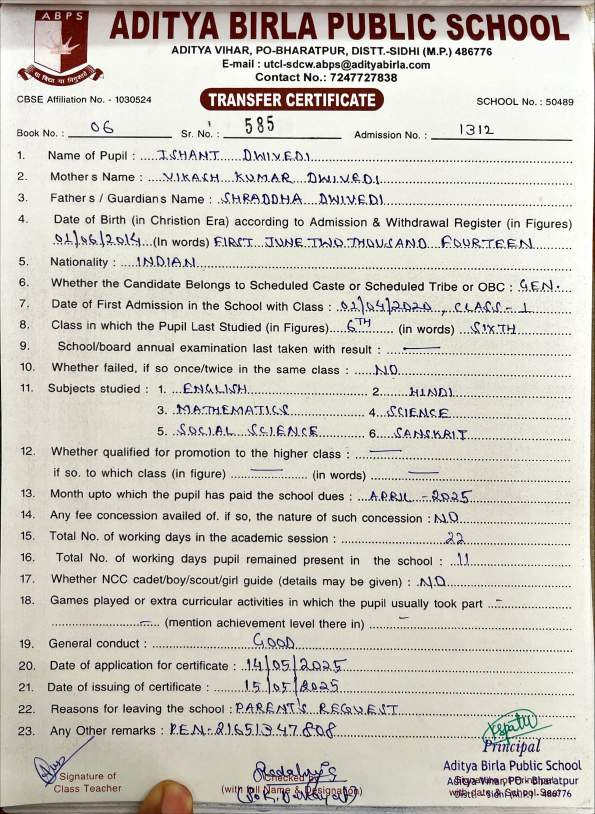 ABPS
ADITYA BIRLA PUBLIC SCHOOL
ADITYA VIHAR, PO-BHARATPUR, DISTT.-SIDHI (M.P.) 486776
E-mail : utcl-sdcw.abps@adityabirla.com
Contact No.: 7247727838
CBSE Affiliation No. - 1030524 TRANSFER CERTIFICATE SCHOOL No. : 50489
Book No. : 06 Sr. No. : 585 Admission No. : 1312
1. Name of Pupil : ISHANT DWIVEDI
2. Mother's Name : VIKASH KUMAR DWIVEDI
3. Father's / Guardian's Name : SHRADDHA DWIVEDI
4. Date of Birth (in Christion Era) according to Admission & Withdrawal Register (in Figures)
01/06/2014 (In words) FIRST JUNE TWO THOUSAND FOURTEEN
5. Nationality : INDIAN
6. Whether the Candidate Belongs to Scheduled Caste or Scheduled Tribe or OBC : GEN.
7. Date of First Admission in the School with Class : 01/04/2020, CLASS-1
8. Class in which the Pupil Last Studied (in Figures) 6TH (in words) SIXTH
9. School/board annual examination last taken with result : —
10. Whether failed, if so once/twice in the same class : NO
11. Subjects studied : 1. ENGLISH 2. HINDI
3. MATHEMATICS 4. SCIENCE
5. SOCIAL SCIENCE 6. SANSKRIT
12. Whether qualified for promotion to the higher class : —
if so. to which class (in figure) — (in words) —
13. Month upto which the pupil has paid the school dues : APRIL - 2025
14. Any fee concession availed of. if so, the nature of such concession : NO
15. Total No. of working days in the academic session : 22
16. Total No. of working days pupil remained present in the school : 11
17. Whether NCC cadet/boy/scout/girl guide (details may be given) : NO
18. Games played or extra curricular activities in which the pupil usually took part —
— (mention achievement level there in) —
19. General conduct : GOOD
20. Date of application for certificate : 14/05/2025
21. Date of issuing of certificate : 15/05/2025
22. Reasons for leaving the school : PARENT'S REQUEST
23. Any Other remarks : PEN-21651347808
Principal
Aditya Birla Public School
Aditya Vihar, PO - Bharatpur
Distt. - Sidhi (M.P.) - 486776
Signature of
Class Teacher
Checked by
(with full Name & Designation)
with date & School Seal